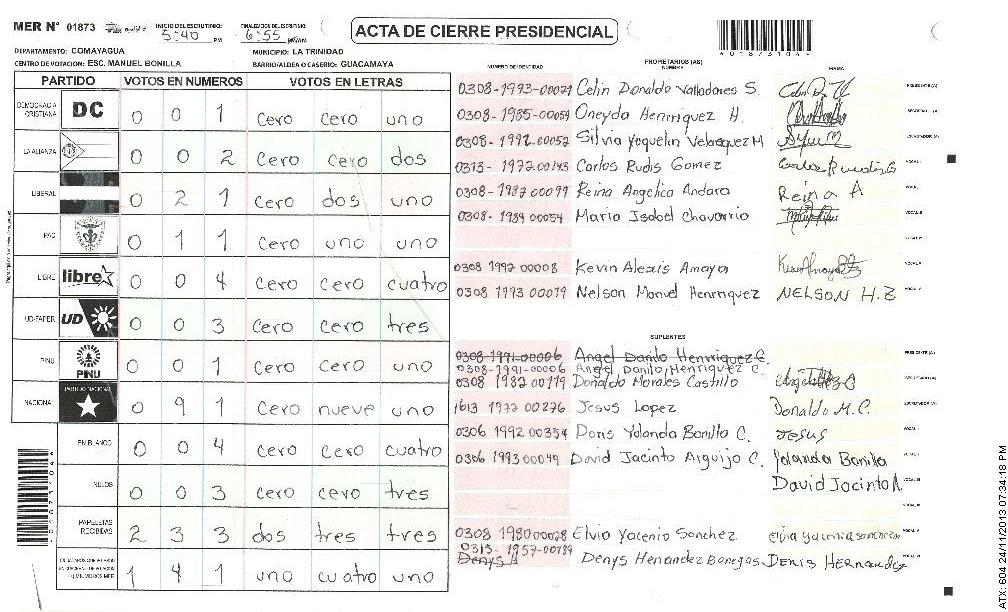 MER N° 01873
INICIO DEL ESCRUTINIO:
5:40 PM
FINALIZACION DEL ESCRUTINIO:
6:55
ACTA DE CIERRE PRESIDENCIAL
DEPARTAMENTO: COMAYAGUA
MUNICIPIO: LA TRINIDAD
CENTRO DE VOTACION: ESC. MANUEL BONILLA
BARRIO/ALDEA O CASERIO: GUACAMAYA
PARTIDO VOTOS EN NUMEROS VOTOS EN LETRAS
DEMOCRACIA CRISTIANA DC 0 0 1 cero cero uno
LA ALIANZA 0 0 2 cero cero dos
LIBERAL 0 2 1 cero dos uno
PAC 0 1 1 cero uno uno
LIBRE libre 0 0 4 cero cero cuatro
UD-FAPER UD 0 0 3 cero cero tres
PINU PINU 0 0 1 cero cero uno
NACIONAL PARTIDO NACIONAL 0 9 1 cero nueve uno
EN BLANCO 0 0 4 cero cero cuatro
NULOS 0 0 3 cero cero tres
PAPELETAS RECIBIDAS 2 3 3 dos tres tres
1 4 1 uno cuatro uno
NUMERO DE IDENTIDAD PROPIETARIOS (AS) NOMBRE FIRMA
0308-1993-00021 Celin Donaldo Valladares S. PRESIDENTE (A)
0308-1985-00054 Oneyda Henrriquez H. SECRETARIO (A)
0308-1992-00052 Silvia Yoquelin Velasquez M ESCRUTADOR (A)
0313-1972-00143 Carlos Rudis Gomez VOCAL I
0308-1987-00099 Reina Angelica Andara Reina A
0308-1989-00054 Maria Isabel Chavarria
0308 1992 00008 Kevin Alexis Amaya
0308 1993 00019 Nelson Manuel Henrriquez NELSON H.Z
SUPLENTES
0308-1991-00006 Angel Danilo Henrriquez C PRESIDENTE (A)
0308-1991-00006 Angel Danilo Henriquez C.
0308 1982 00119 Donaldo Morales Castillo SECRETARIO (A)
1613 1972 00276 Jesus Lopez Donaldo M.C. ESCRUTADOR (A)
0306 1992 00354 Doris Yolanda Bonilla C. Jesus
0306 1993 00049 David Jacinto Arguijo C. Yolanda Bonilla
David Jacinto A
0308 1980 00028 Elvia Yacenia Sanchez elvia yacenia sanchez
0313-1957-00189
Denys H Denys Henandez Banegas DENIS HERNANDEZ
ATX: 604 24/11/2013 07:34:18 PM